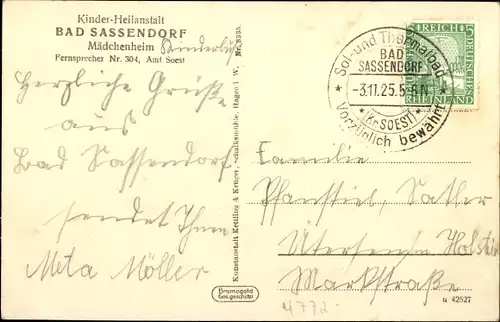 Kinder-Heilanstalt
BAD SASSENDORF
Mädchenheim
Fernsprecher Nr. 304, Amt Soest
Herzliche Grüße
aus
Bad Sassendorf
sendet Ihnen
Meta Möller
Nr. 3335.
Kunstanstalt Kettling & Krüger, Schalksmühle, Hagen i. W.
Bromogold
Ges. geschützt
Sol- und Thermalbad
BAD
SASSENDORF
-3.11.25.5-6N
(Kr. SOEST)
Vorzüglich bewährt
5 REICH 5
RHEINLAND
DEUTSCHES
Familie
Pfannstiel, Sattler
Ütersen i. Holstein
Marktstraße
4772-
u 42527